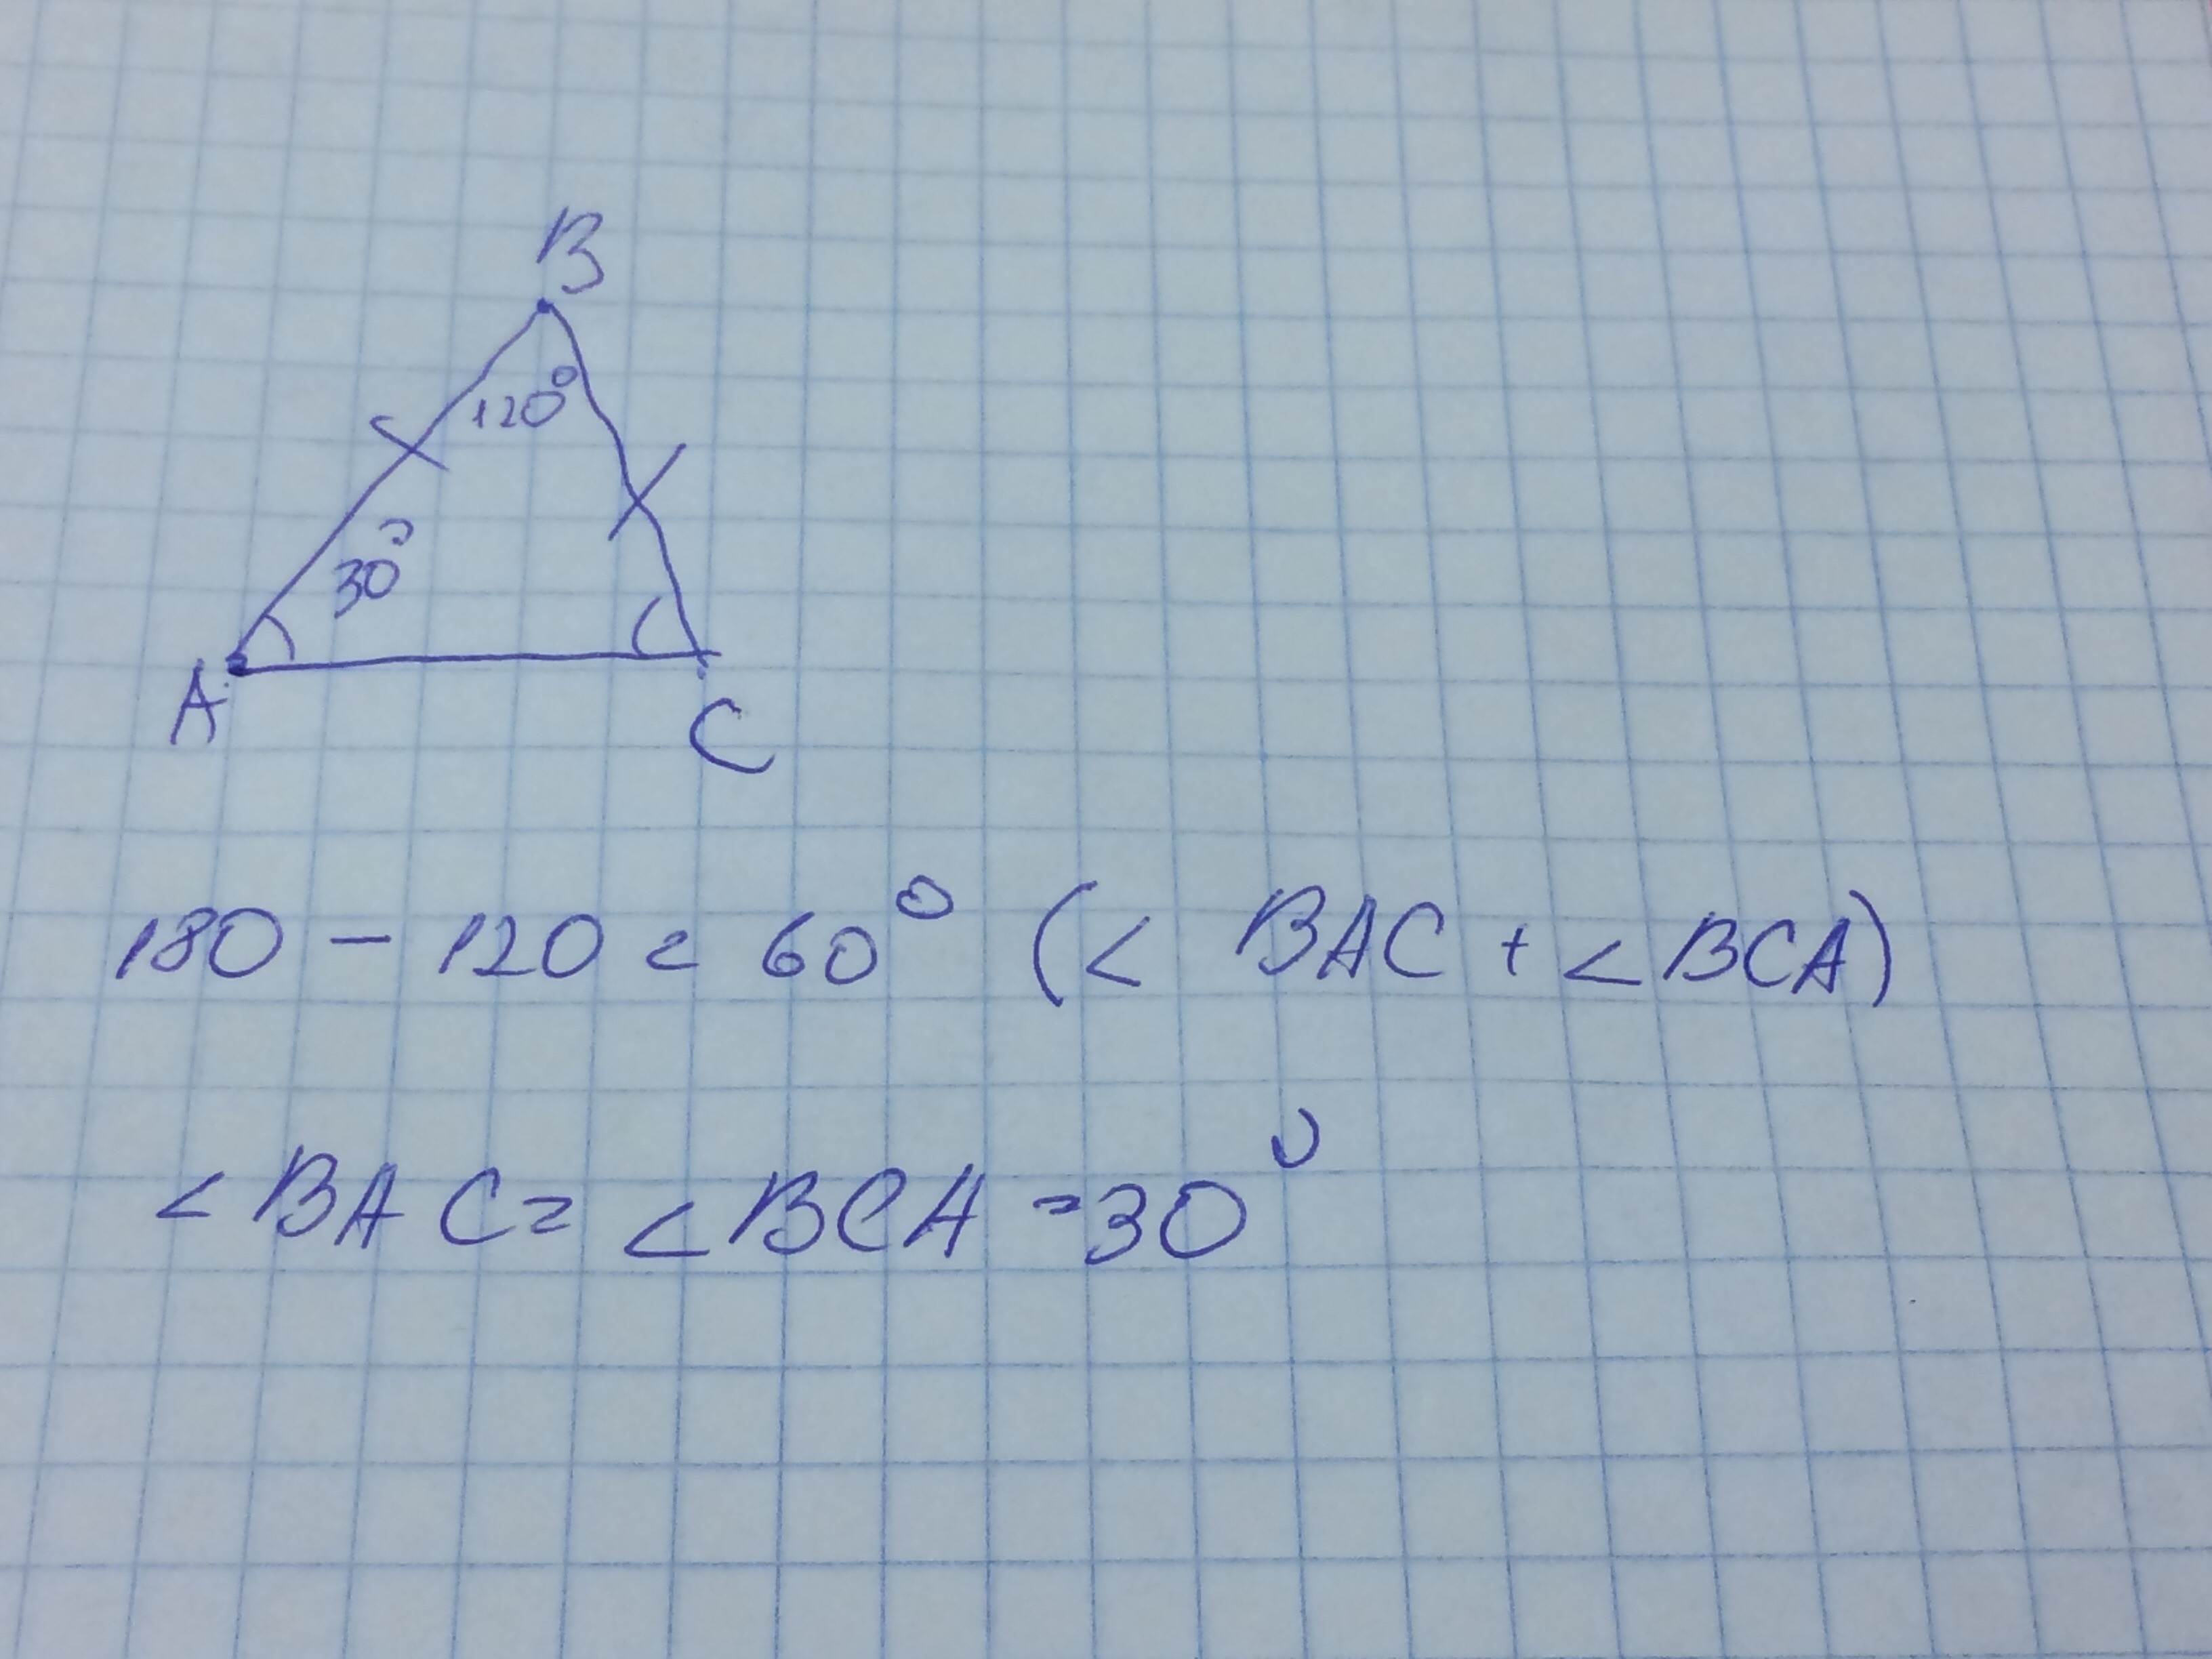 B
120°
30°
A
C
180 - 120 = 60° (∠ BAC + ∠BCA)
∠BAC = ∠BCA = 30°